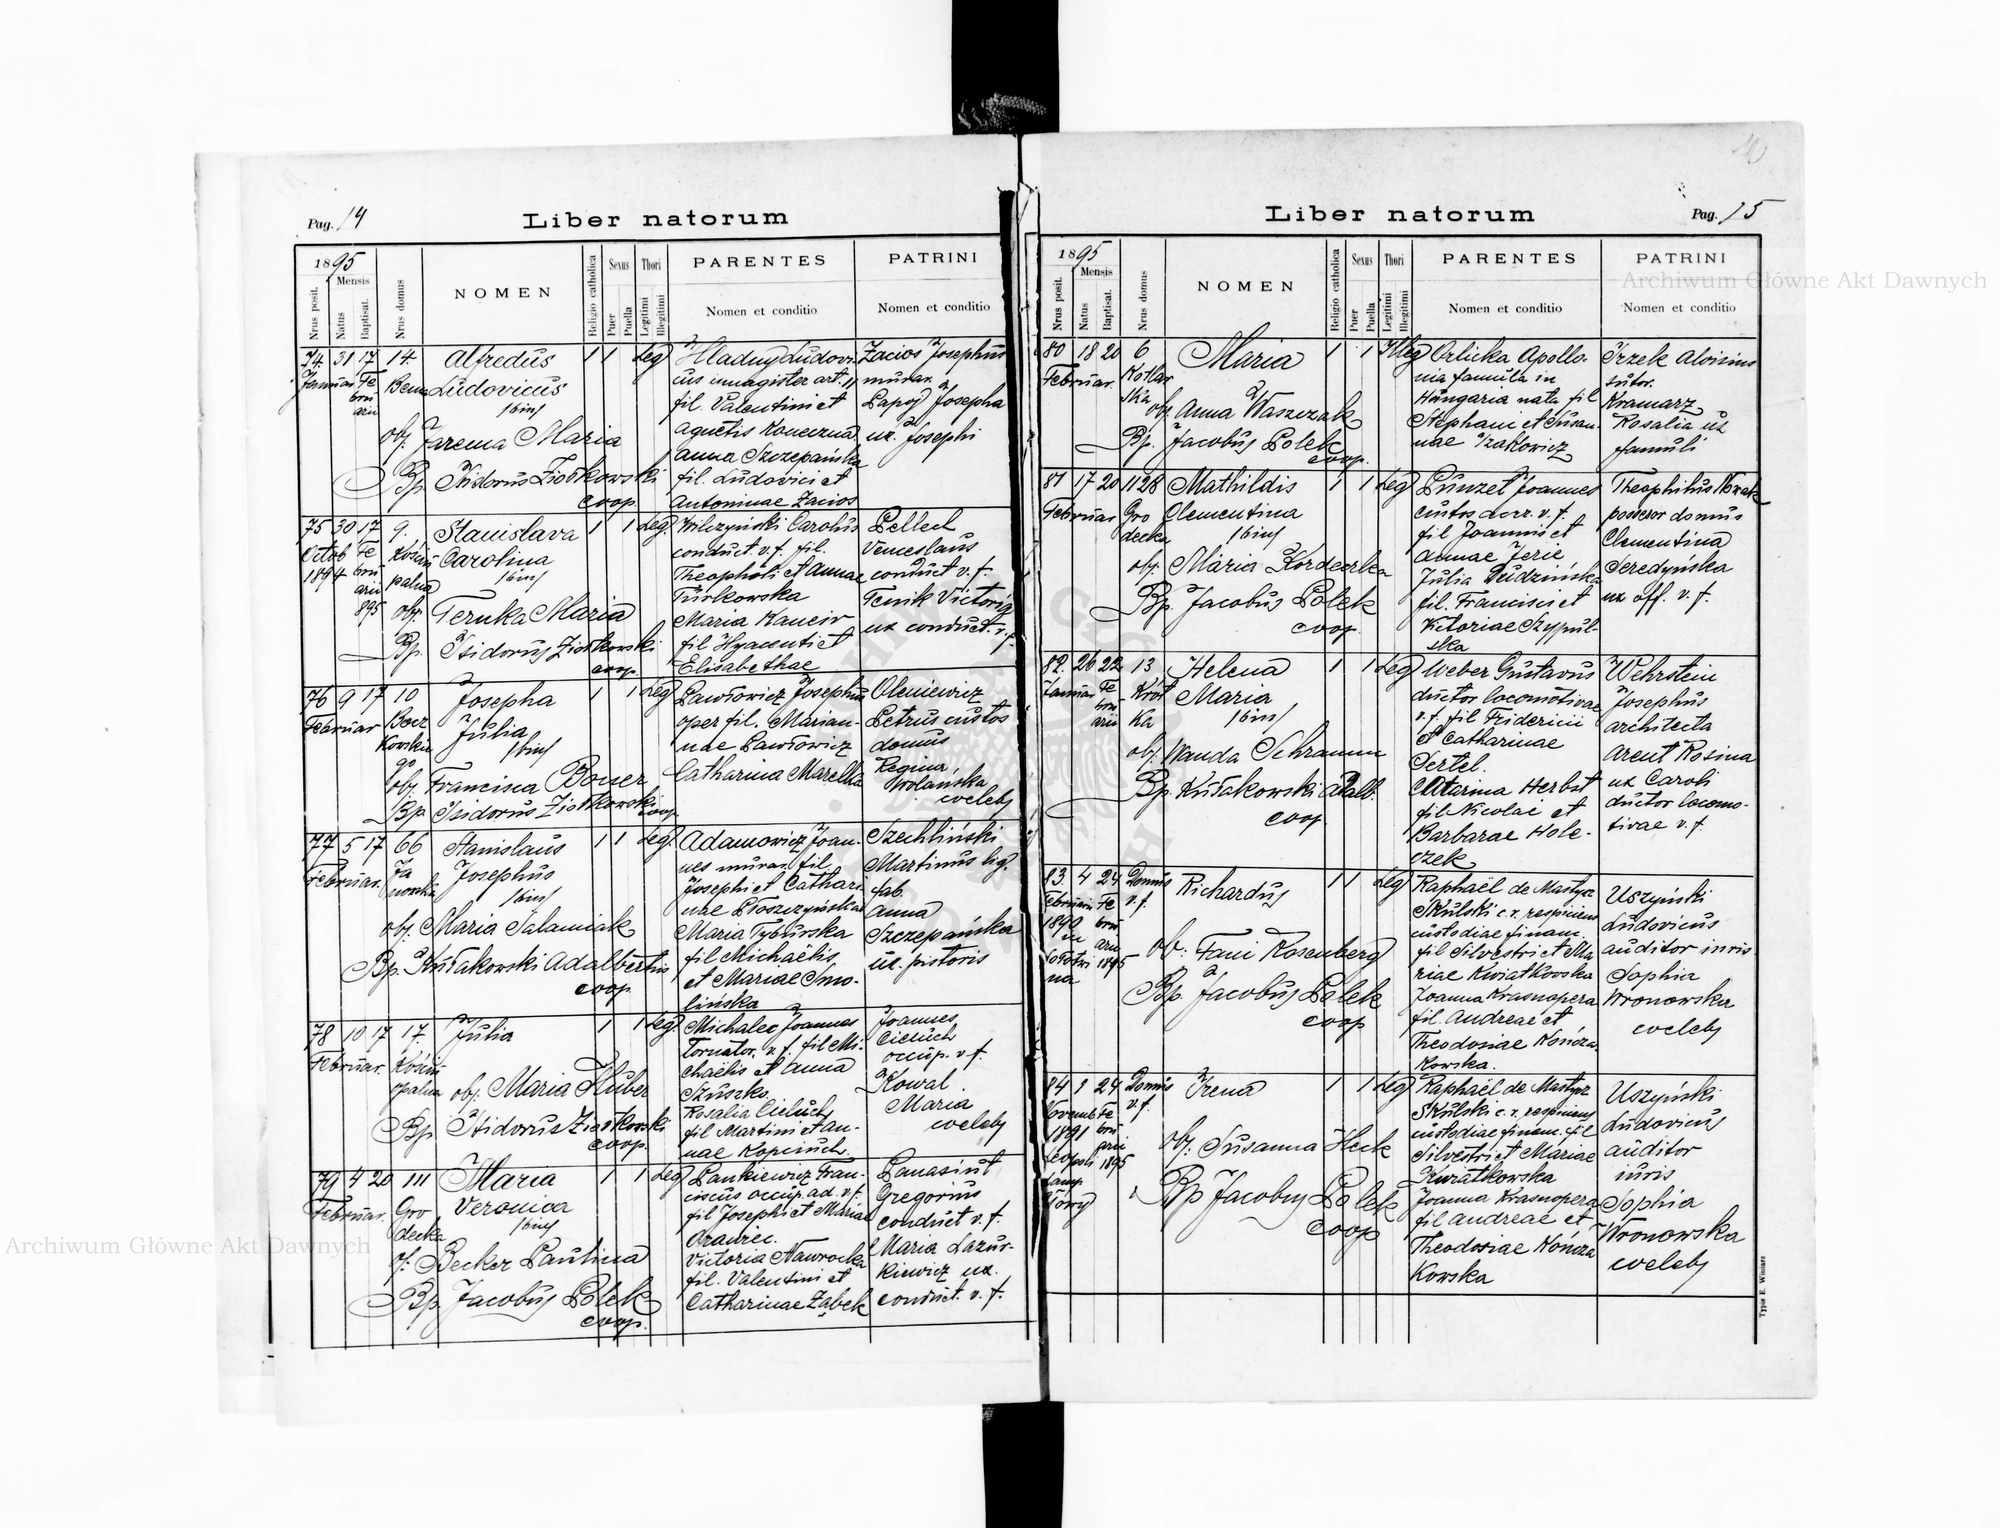 Pag. 14
Liber natorum
1895
Mensis
Nrus posit.
Natus
Baptisat.
Nrus domus
NOMEN
Religio catholica
Sexus
Puer
Puella
Thori
Legitimi
Illegitimi
PARENTES
Nomen et conditio
PATRINI
Nomen et conditio
74. 31 17 14
Januar. Fe
bru
arii
Alfredus
Ludovicus
/bin/
obj. Jarema Maria
Bp. Isidorus Ziołkowski
coop.
1 1 Leg
Hladny Ludovi-
cus
fil. Valentini et
Agnetis Konieczna
Anna Szczepańska
fil. Ludovici et
Antoninae Zacios
Zacios Josephus
murar.
Josepha
ux. Josephi
75 30 17 9.
Octob Fe
1894 bru
arii
895
Stanislava
Carolina
/bin/
obj. Teruka Maria
Bp. Isidorus Ziołkowski
coop.
1 1 Leg.
Wilczyński Carolus
conduct. v. f. fil.
Theophili et Annae
Turkowska
Maria
fil Hyacenti et
Elisabethae
Pellech
Venceslaus
conduct v. f.
Victoria
ux conduct. v. f.
76 9 17 10
Februar
Bocz
kowskie
go
Josepha
Julia
/bin/
obj. Francisca Boner
Bp. Isidorus Ziołkowski
coop.
1 1 Leg
Pawłowicz Josephus
oper fil. Marian-
nae Pawłowicz
Catharina Marella
Oleniewicz
Petrus custos
domus
Regina
Wolańska
coelebs
77 5 17 66
Februar.
Ja
nowska
Stanislaus
Josephus
/bin/
obj. Maria Salamiak
Bp. Kułakowski Adalbertus
coop.
1 1 Leg.
Adamowicz Joan-
nes murar. fil.
Josephi et Cathari
nae Płoszczyńska
Maria Tyburska
fil Michaëlis
et Mariae Smo-
lińska
Szechliński
Martinus lig.
fab.
Anna
Szczepańska
ux. pistoris
78 10 17 17.
Februar.
Julia
obj. Maria Huber
Bp Isidorus Ziołkowski
coop.
1 1 Leg.
Michalec Joannes
Tornator. v. f. fil Mi-
chaëlis et Anna
Szuszko.
Rosalia Cieluch
fil Martini et An-
nae Kopciuch.
Joannes
Cieluch
occup. v f.
Kowal
Maria
coelebs
79 4 20 111
Februar.
Gro
decka
Maria
Veronica
/bin/
obj. Becker Paulina
Bp. Jacobus Polek
coop.
1 1 Leg
Pankiewicz Fran-
ciscus occup. ad. v. f.
fil Josephi et Mariae
Victoria Nawrocka
fil. Valentini et
Catharinae Ząbek
Panasiut
Gregorius
conduct v. f.
Maria Lazur-
kiewicz ux.
conduct. v. f.
Liber natorum
Pag. 15
1895
Mensis
Nrus posit.
Natus
Baptisat.
Nrus domus
NOMEN
Religio catholica
Sexus
Puer
Puella
Thori
Legitimi
Illegitimi
PARENTES
Nomen et conditio
PATRINI
Nomen et conditio
80 18 20 6
Februar.
Kotlar
ska
Maria
obj. Anna Waszczak
Bp. Jacobus Polek
coop.
1 1 Illeg
Orlicka Apollo-
nia famula in
Hungaria nata fil
Stephani et Susan-
nae Izakowicz
Irzek Aloisius
sutor.
Kramarz
Rosalia ux
famuli
81 17 20 1128
Februar
Gro
decka
Mathildis
Clementina
/bin/
obj. Maria Kordecka
Bp. Jacobus Polek
coop.
1 1 Leg
Punzet Joannes
custos v. f.
fil Joannis et
Annae Jerie
Julia Dudzińska
fil. Francisci et
Victoriae Szypul-
ska
Theophilus Nowak
possesor domus
Clementina
Seredyńska
ux off. v. f.
82. 26 22 13
Januar Fe
bru
arii
Krót
ka
Helena
Maria
/bin/
obj. Wanda Schramm
Bp. Kułakowski Adalb.
coop.
1 1 Leg
Weber Gustavus
ductor locomotivae
v. f. fil Friderici
et Catharinae
Sertel.
Catarina Herbst
fil Nicolai et
Barbarae Hole-
czek
Wehrstein
Josephus
architecta
Arent Rosina
ux Caroli
ductor locomo-
tivae v. f.
83. 4 24 Domus
Februarii Fe v. f.
1890 bru
in arii
1895
Richardus
ob. Fani Rosenberg
Bp. Jacobus Polek
coop
1 1 Leg
Raphaël de Mastycz
Skulski c. r. respiciens
custodiae finan.
fil Silvestri et Ma
riae Kwiatkowska
Joanna Krasnopera
fil. Andreae et
Theodosiae Kończa
kowska.
Uszyński
Ludovicus
auditor iuris
Sophia
Wronowska
coelebs
84 1 24 Domus
Novemb Fe v. f.
1891 bru
arii
Leopoli 1895
Irena
obj. Susanna Heck
Bp Jacobus Polek
coop
1 1 Leg
Raphaël de Mastycz
Skulski c. r. respiciens
custodiae finan. fil
Silvestri et Mariae
Kwiatkowska
Joanna Krasnopera
fil Andreae et
Theodosiae Kończa
kowska
Uszyński
Ludovicus
auditor
iuris
Sophia
Wronowska
coelebs
Typis E. Winiarz
Archiwum Główne Akt Dawnych
Archiwum Główne Akt Dawnych